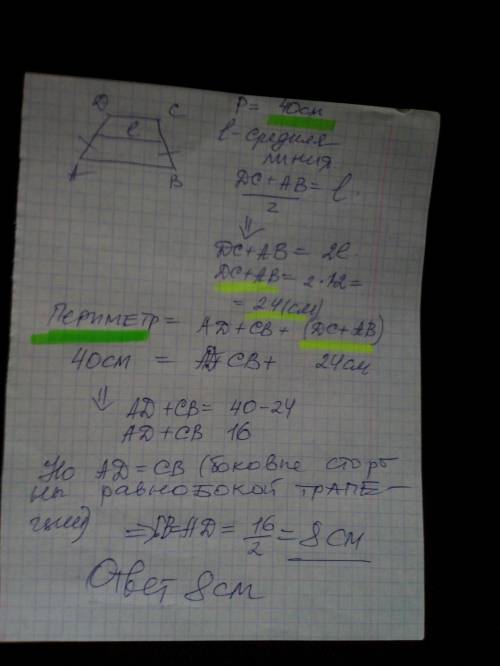 D C
P = 40см
l
l - средняя
линия
A B
DC + AB / 2 = l
⇓
DC + AB = 2l
DC + AB = 2·12 =
= 24 (см)
Периметр = AD + CB + (DC + AB)
40см = AD CB + 24см
⇓ AD + CB = 40 - 24
AD + CB 16
Но AD = CB (боковые сторо
ны равнобокой трапе-
ции)
⇒ CB = AD = 16/2 = 8 см
Ответ 8 см